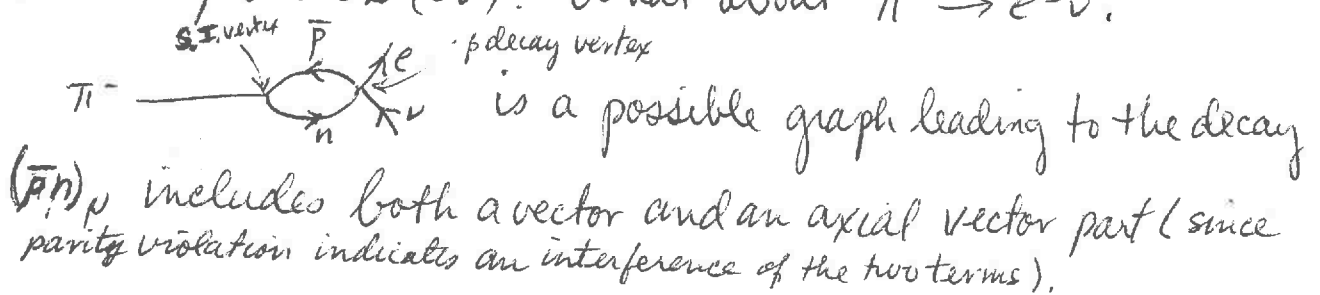 π → e ν.
S.I. vertex p̄ e β decay vertex
π⁻ n ν is a possible graph leading to the decay
(p̄n)μ includes both a vector and an axial vector part (since
parity violation indicates an interference of the two terms).